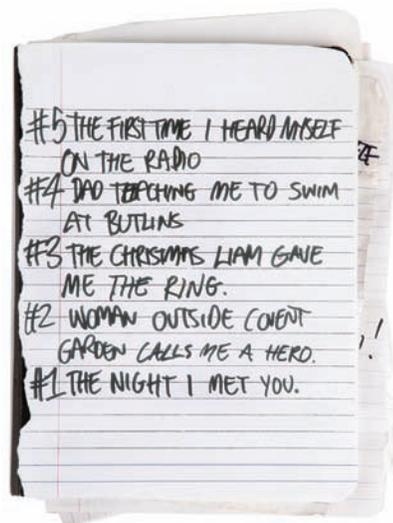 #5 THE FIRST TIME I HEARD MYSELF
ON THE RADIO
#4 DAD TEACHING ME TO SWIM
AT BUTLINS
#3 THE CHRISTMAS LIAM GAVE
ME THE RING.
#2 WOMAN OUTSIDE COVENT
GARDEN CALLS ME A HERO.
#1 THE NIGHT I MET YOU.